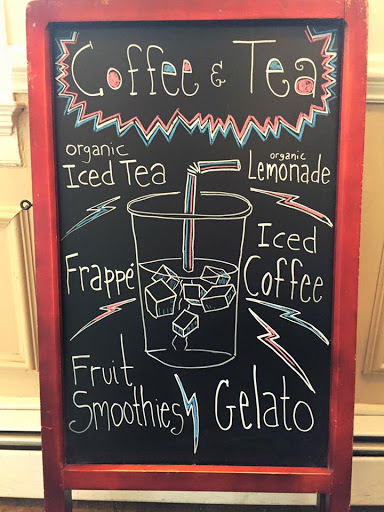 Coffee & Tea
organic
Iced Tea
organic
Lemonade
Frappé
Iced
Coffee
Fruit
Smoothies
Gelato